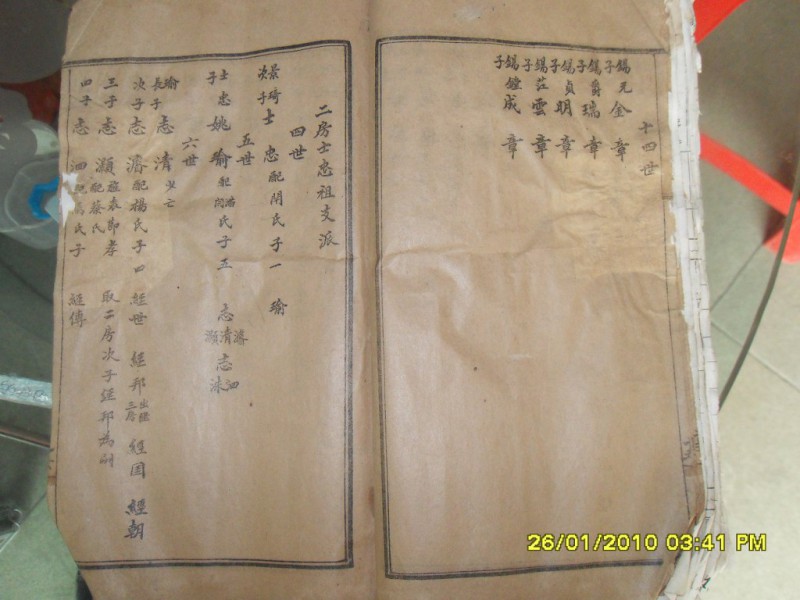 十四世
錫元子 金章
錫爵子 瑞章
錫貞子 明章
錫莊子 雲章
錫鐘子 成章
二房士忠祖支派
四世
景琦次子 士忠 配閔氏 子一 瑜
五世
士忠子 姚瑜 配 氏 子五 志清 濬 灝 志泗 洙
六世
瑜長子 志清 少亡
次子 志濬 配楊氏 子四 經世 經邦 出繼三房 經國 經朝
三子 志灝 配蔡氏 旌表節孝 取二房次子經邦為嗣
四子 志泗 配 氏 子 經傳
26/01/2010 03:41 PM